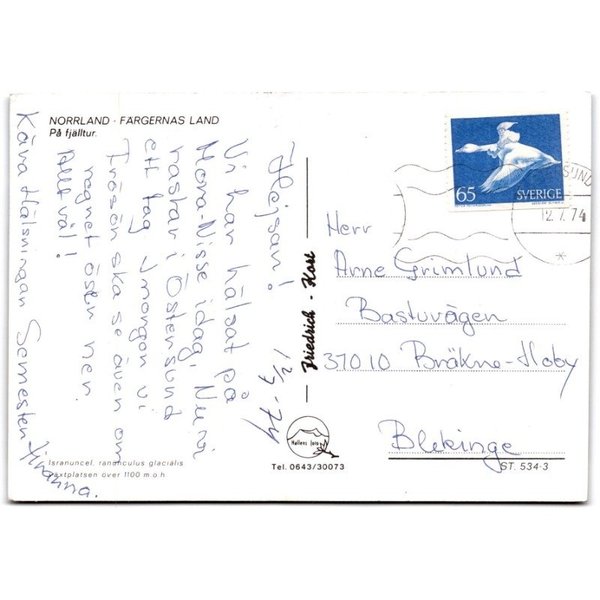 NORRLAND - FÄRGERNAS LAND
På fjälltur.
Hejsan! 12/7-74
Vi har hälsat på
Mora-Nisse idag. Nu
rastar i Östersund
ett tag. Imorgon vi
Frösön ska se även om
regnet öser ner.
Allt väl!
Kära Hälsningar
Isranuncel, ranunculus glacialis
växtplatsen över 1100 m.ö.h.
Friedrich - Kort
Hallens foto
Tel. 0643/30073
65 SVERIGE
SUND
12.7.74
Herr
Arne Grimlund
Bastuvägen
37010 Bräkne-Hoby
Blekinge
ST. 534-3